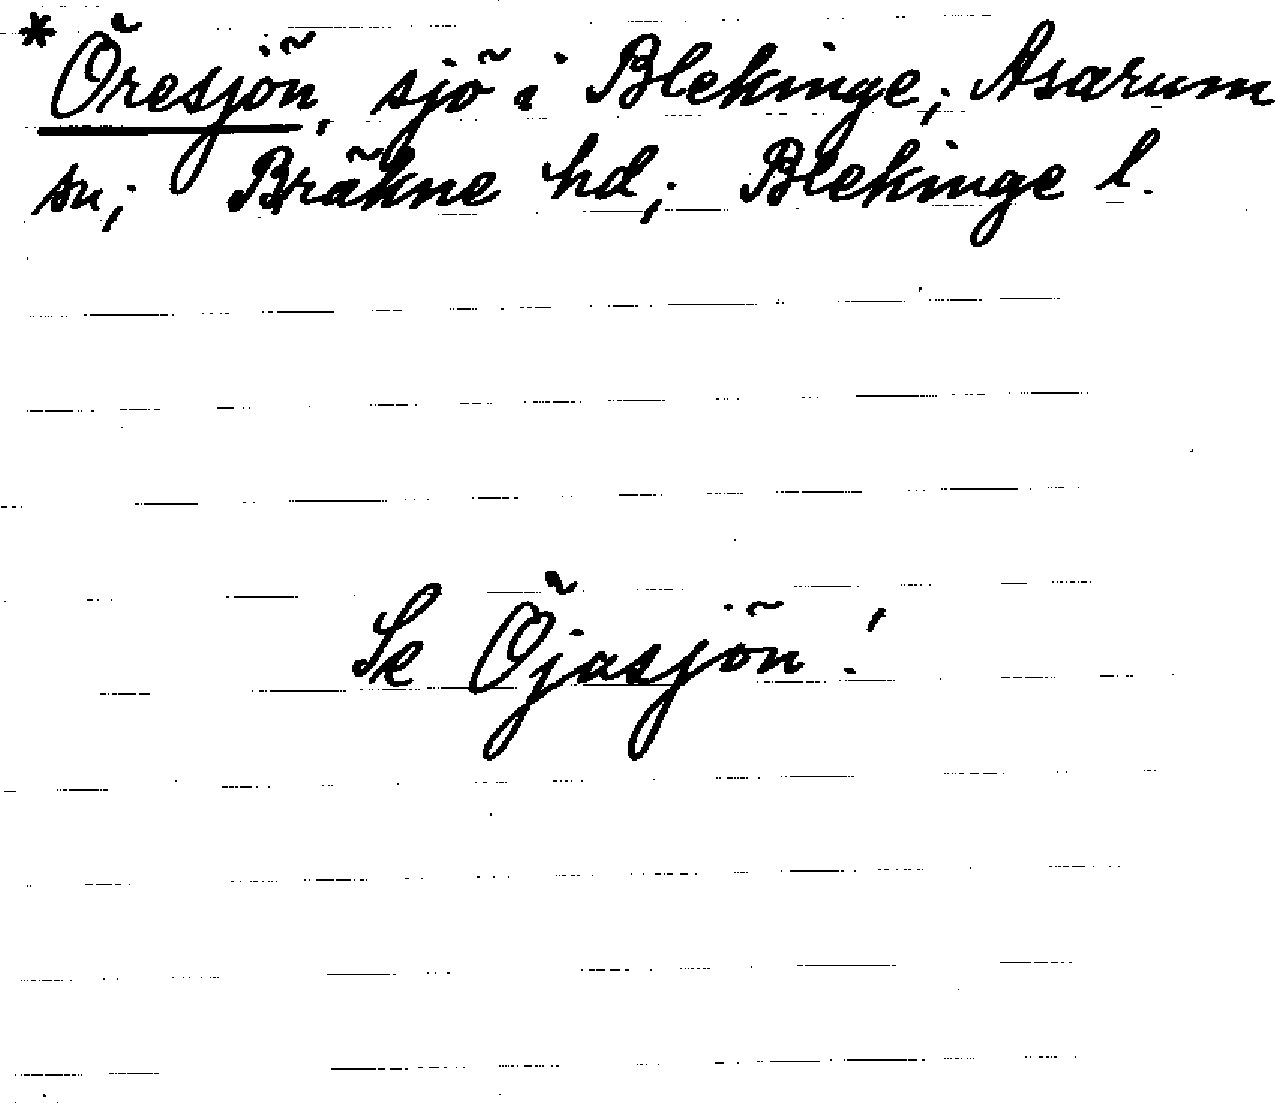 *Öresjön, sjö i Blekinge; Asarum
sn; Bräkne hd; Blekinge l.
Se Öjasjön!